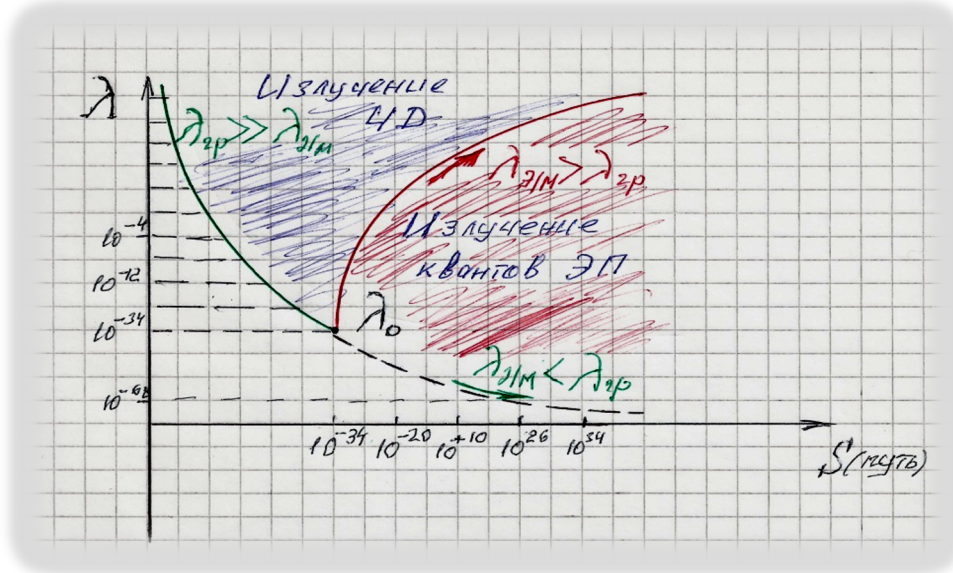 λ
Излучение
ЧД
λгр >> λэ/м
λэ/м > λгр
Излучение
квантов ЭП
10⁻⁴
10⁻¹²
10⁻³⁴
λ₀
λэ/м < λгр
10⁻³⁴ 10⁻²⁰ 10⁺¹⁰ 10²⁶ 10³⁴
S(путь)